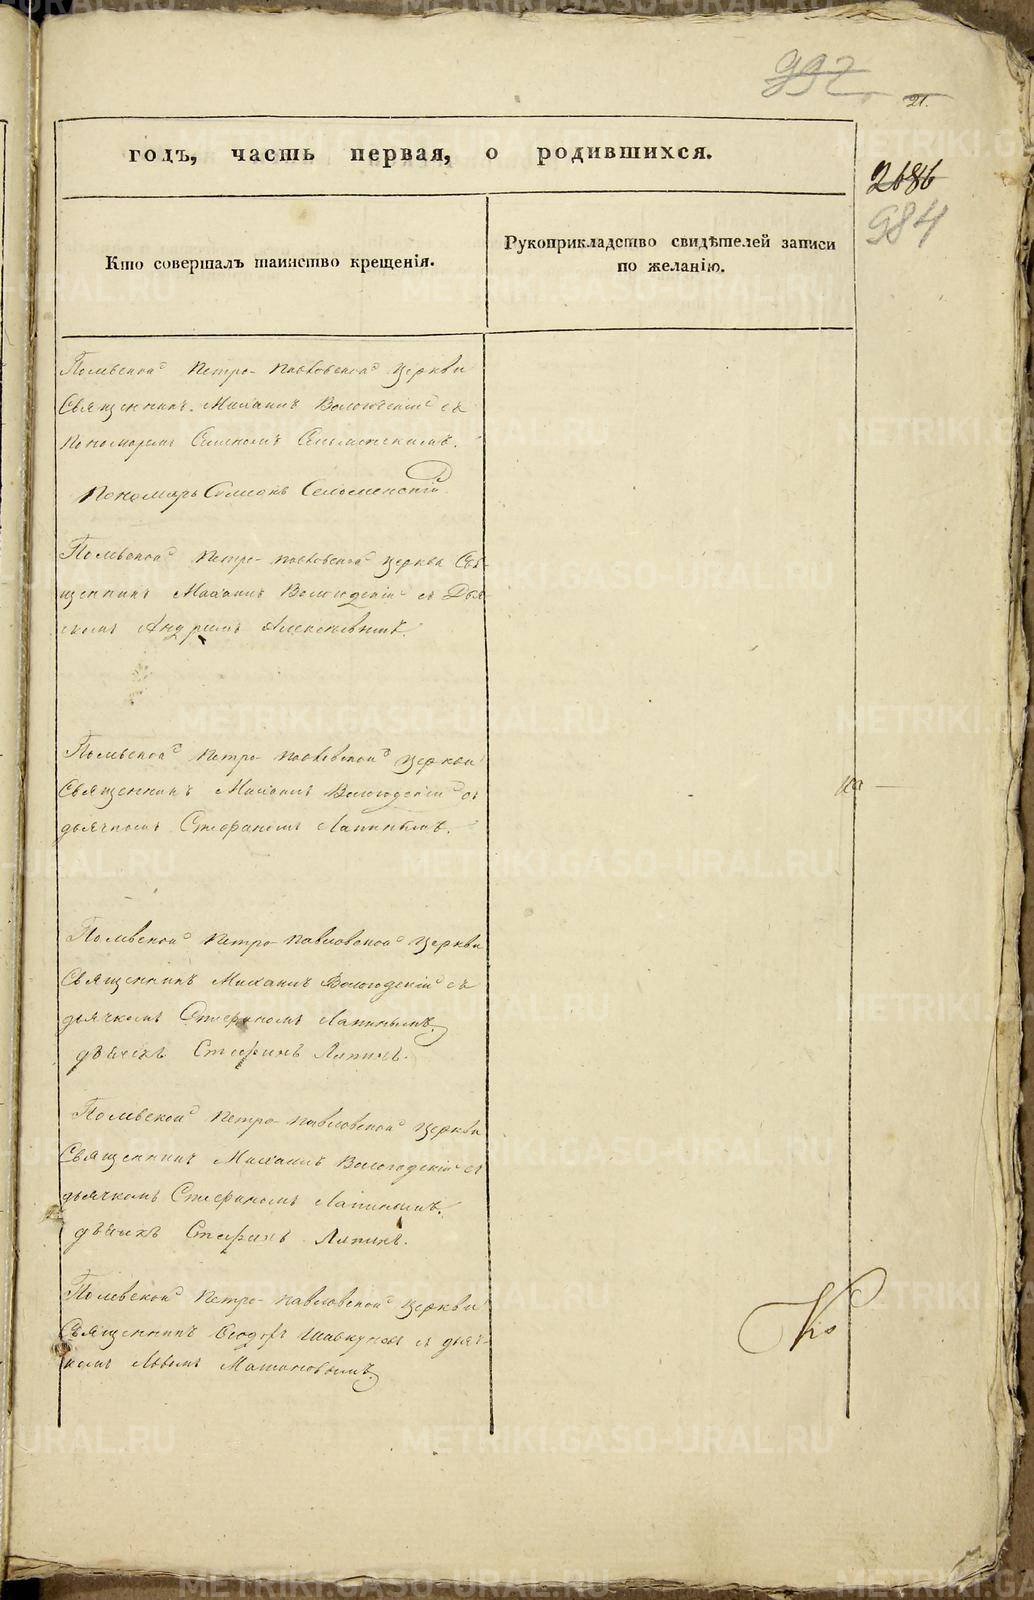 997
21.
2686
984
годъ, часть первая, о родившихся.
Кто совершалъ таинство крещенія.
Рукоприкладство свидѣтелей записи
по желанію.
Полевской Петро-Павловской церкви
Священникъ Михаилъ Вологодскій съ
пономаремъ
Пономарь Симеонъ
Полевской Петро-Павловской церкви Свя-
щенникъ Михаилъ Вологодскій съ
Андреемъ
Полевской Петро-Павловской церкви
Священникъ Михаилъ Вологодскій съ
дьячкомъ Стефаномъ Лапинымъ.
Полевской Петро-Павловской церкви
Священникъ Михаилъ Вологодскій съ
дьячкомъ Стефаномъ Лапинымъ.
Стефанъ Лапинъ.
Полевской Петро-Павловской церкви
Священникъ Михаилъ Вологодскій съ
дьячкомъ Стефаномъ Лапинымъ.
Стефанъ Лапинъ.
Полевской Петро-Павловской церкви
Священникъ Ѳеодоръ съ дьяч-
комъ
METRIKI.GASO-URAL.RU